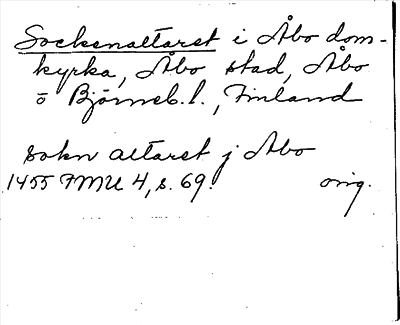 Sockenaltaret i Åbo dom-
kyrka, Åbo stad, Åbo
o Björneb. l., Finland
sokn altaret j Abo
1455 FMU 4, s. 69. orig.